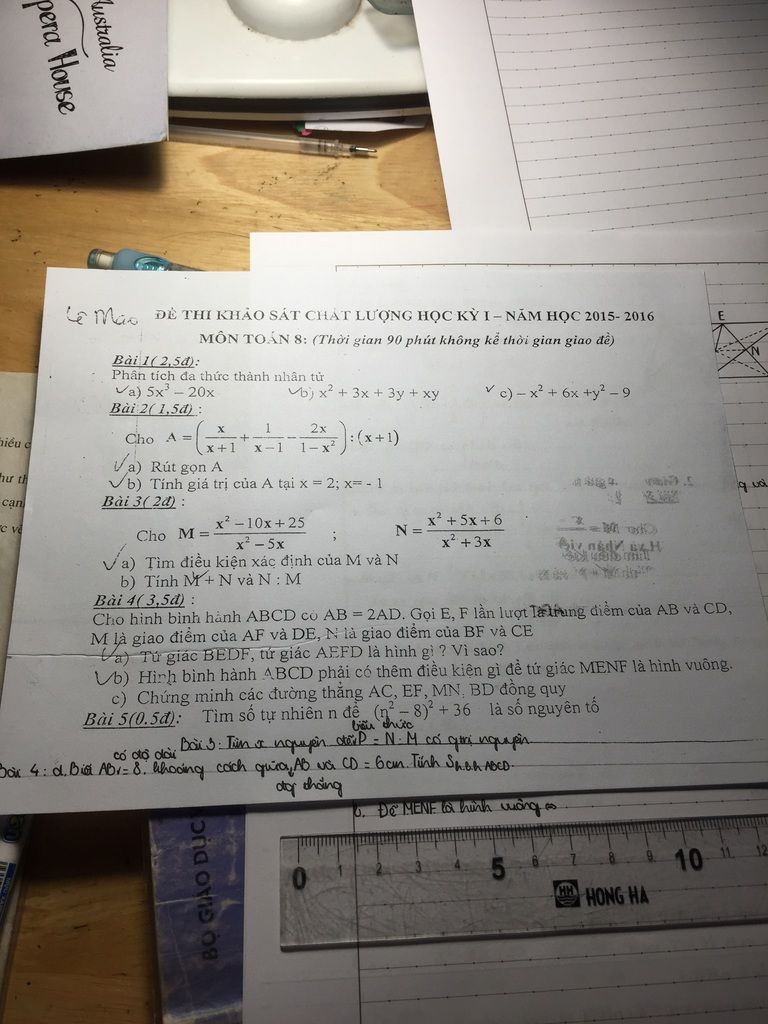 Australia
pera House
Lê Mão ĐỀ THI KHẢO SÁT CHẤT LƯỢNG HỌC KỲ I – NĂM HỌC 2015- 2016
MÔN TOÁN 8: (Thời gian 90 phút không kể thời gian giao đề)
Bài 1( 2,5đ):
Phân tích đa thức thành nhân tử
a) 5x³ – 20x b) x² + 3x + 3y + xy c) – x² + 6x +y² – 9
Bài 2( 1,5đ) :
Cho A = (x/(x+1) + 1/(x−1) − 2x/(1−x²)) : (x+1)
a) Rút gọn A
b) Tính giá trị của A tại x = 2; x= - 1
Bài 3( 2đ) :
Cho M = (x² −10x + 25)/(x² −5x) ; N = (x² + 5x + 6)/(x² + 3x)
a) Tìm điều kiện xác định của M và N
b) Tính M + N và N : M
Bài 4( 3,5đ) :
Cho hình bình hành ABCD có AB = 2AD. Gọi E, F lần lượt là trung điểm của AB và CD,
M là giao điểm của AF và DE, N là giao điểm của BF và CE
a) Tứ giác BEDF, tứ giác AEFD là hình gì ? Vì sao?
b) Hình bình hành ABCD phải có thêm điều kiện gì để tứ giác MENF là hình vuông.
c) Chứng minh các đường thẳng AC, EF, MN, BD đồng quy
Bài 5(0.5đ): Tìm số tự nhiên n để (n² – 8)² + 36 là số nguyên tố
biểu thức
Bài 3: Tìm x nguyên để P = N : M có giá trị nguyên
có độ dài
Bài 4 : d. Biết AB = 8. khoảng cách giữa AB và CD = 6cm. Tính S h.b.h ABCD.
đoạn thẳng
E
N
b. Để MENF là hình vuông
BỘ GIÁO DỤC
0 1 2 3 4 5 6 7 8 9 10 11 12
HH HONG HA